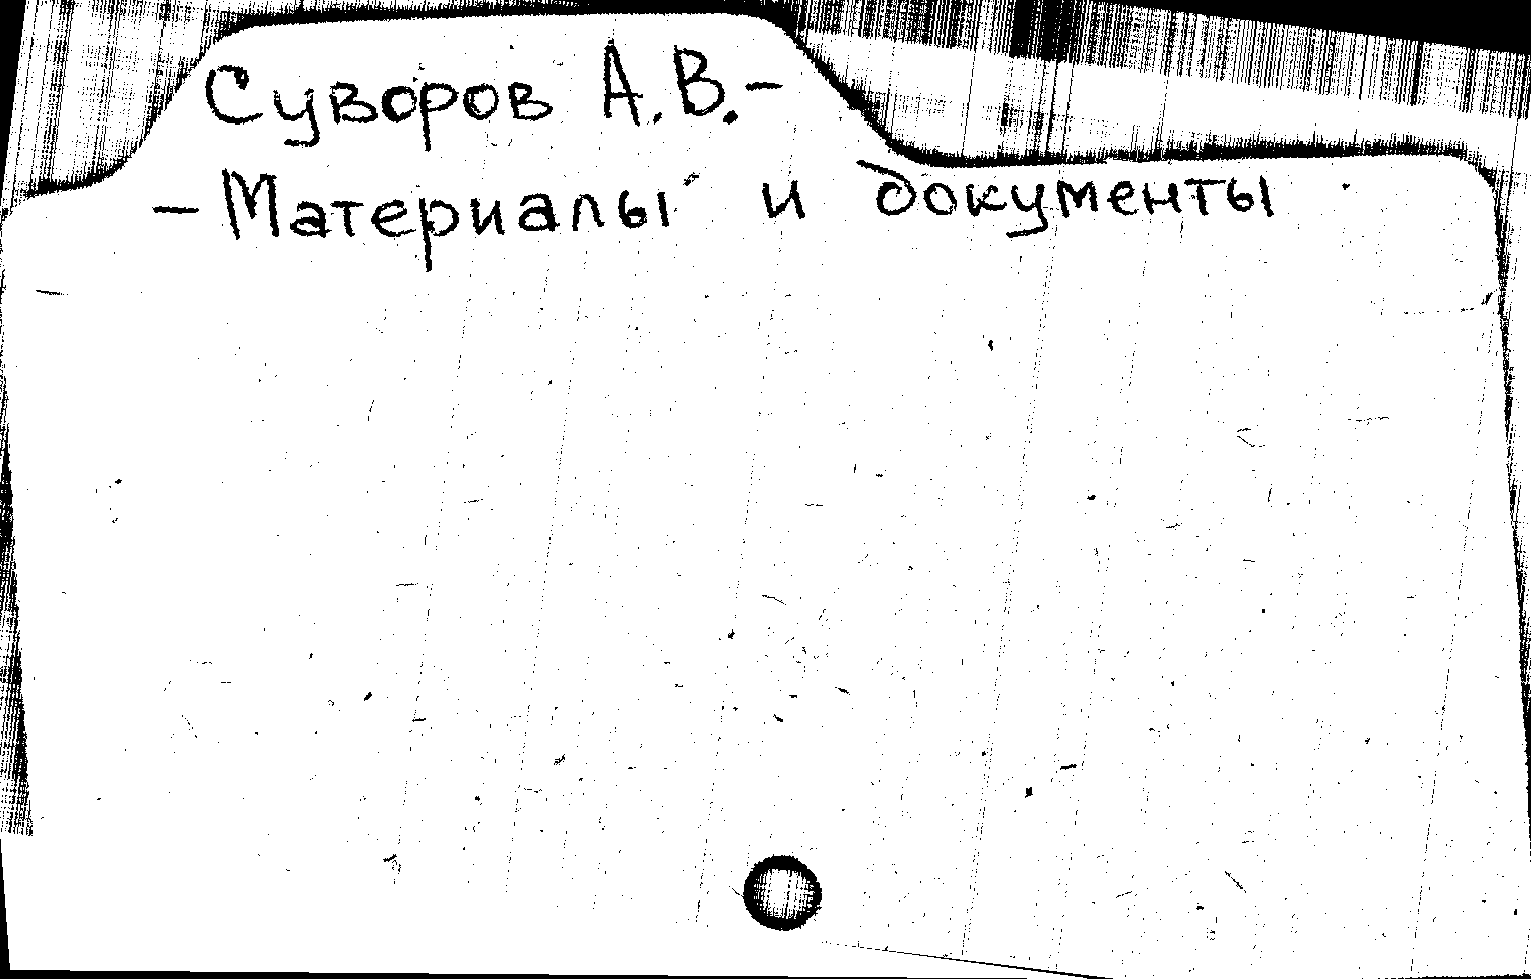 Суворов А.В.-
- Материалы и документы